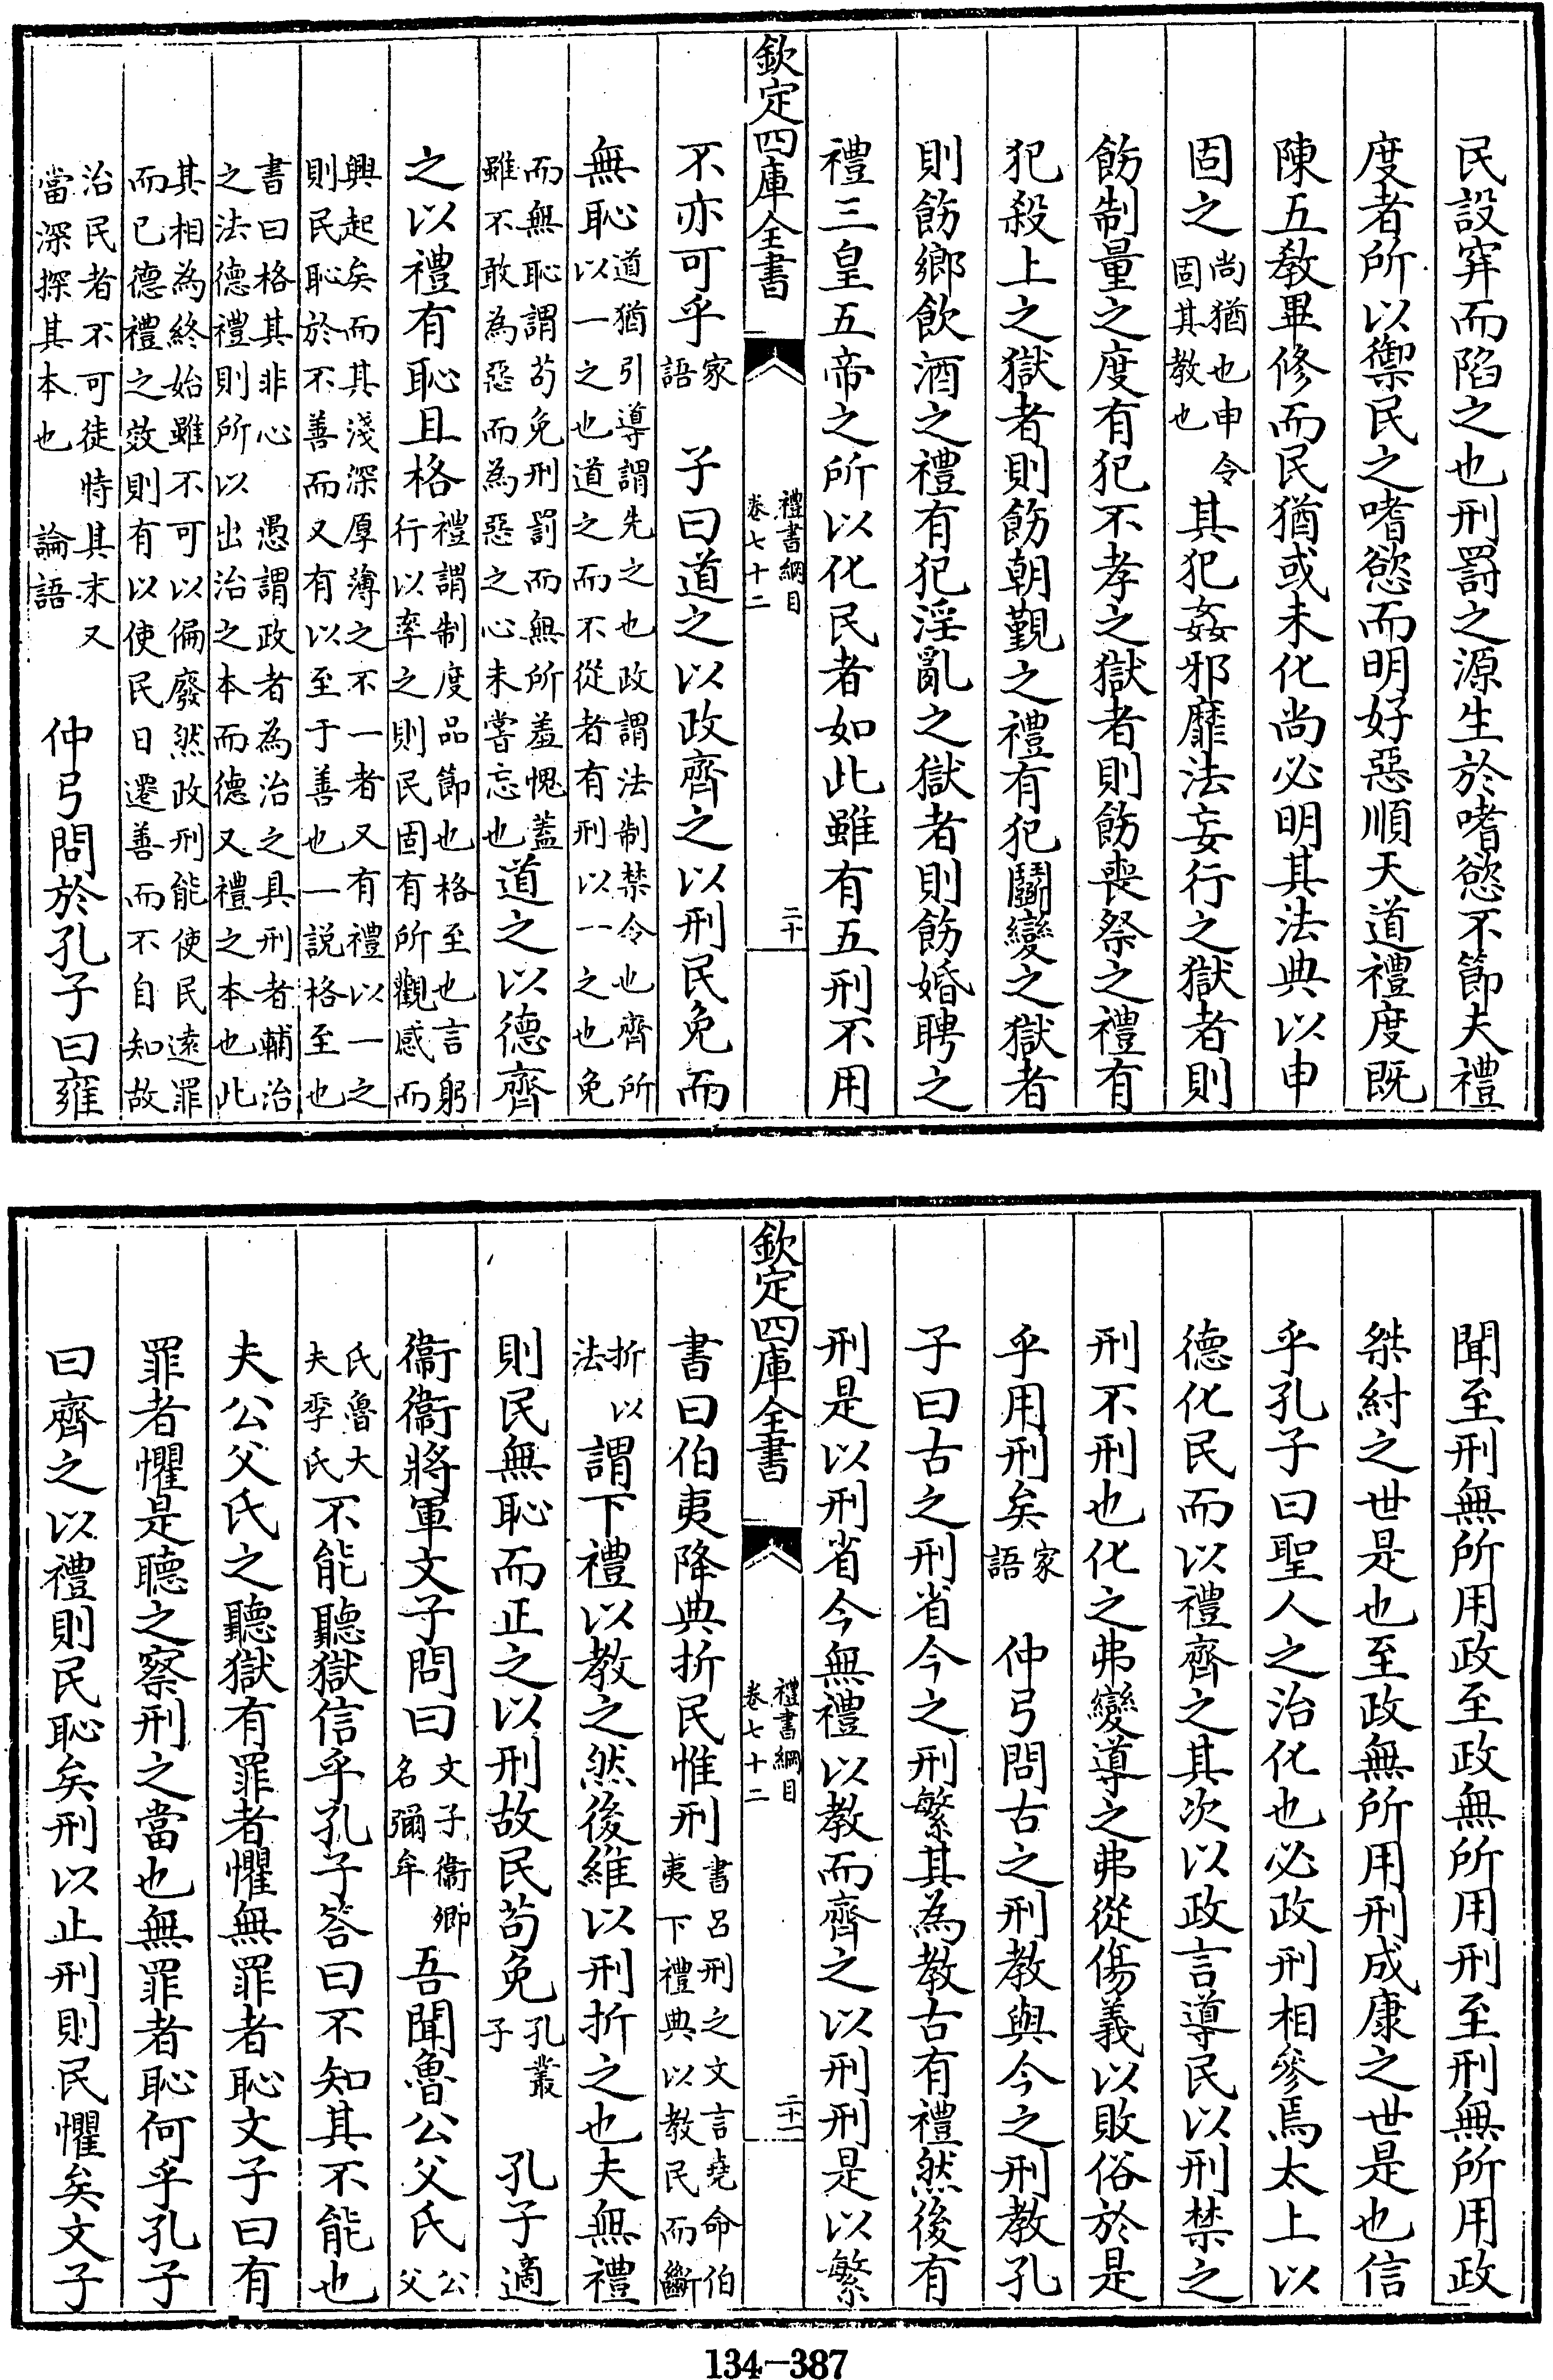 民設穽而陷之也刑罰之源生於嗜慾不節夫禮
度者所以禦民之嗜慾而明好惡順天道禮度既
陳五教畢修而民猶或未化尚必明其法典以申
固之尚猶也申令固其教也其犯姦邪靡法妄行之獄者則
飭制量之度有犯不孝之獄者則飭喪祭之禮有
犯殺上之獄者則飭朝覲之禮有犯鬭變之獄者
則飭鄉飲酒之禮有犯淫亂之獄者則飭婚聘之
禮三皇五帝之所以化民者如此雖有五刑不用
欽定四庫全書 禮書綱目卷七十二 二十
不亦可乎家語 子曰道之以政齊之以刑民免而
無恥道猶引導謂先之也政謂法制禁令也齊所以一之也道之而不從者有刑以一之也免
而無恥謂苟免刑罰而無所羞愧蓋雖不敢為惡而為惡之心未嘗忘也道之以德齊
之以禮有恥且格禮謂制度品節也格至也言躬行以率之則民固有所觀感而
興起矣而其淺深厚薄之不一者又有禮以一之則民恥於不善而又有以至于善也一説格至也
書曰格其非心 愚謂政者為治之具刑者輔治之法德禮則所以出治之本而德又禮之本也此
其相為終始雖不可以偏廢然政刑能使民遠罪而已德禮之效則有以使民日遷善而不自知故
治民者不可徒恃其末又當深探其本也 論語 仲弓問於孔子曰雍
聞至刑無所用政至政無所用刑至刑無所用政
桀紂之世是也至政無所用刑成康之世是也信
乎孔子曰聖人之治化也必政刑相參焉太上以
德化民而以禮齊之其次以政言導民以刑禁之
刑不刑也化之弗變導之弗從傷義以敗俗於是
乎用刑矣家語 仲弓問古之刑教與今之刑教孔
子曰古之刑省今之刑繁其為教古有禮然後有
刑是以刑省今無禮以教而齊之以刑刑是以繁
欽定四庫全書 禮書綱目卷七十二 二十一
書曰伯夷降典折民惟刑書呂刑之文言堯命伯夷下禮典以教民而斷
折以法謂下禮以教之然後維以刑折之也夫無禮
則民無恥而正之以刑故民苟免孔叢子 孔子適
衞衞將軍文子問曰文子衞卿名彌牟吾聞魯公父氏公父
氏魯大夫季氏不能聽獄信乎孔子答曰不知其不能也
夫公父氏之聽獄有罪者懼無罪者恥文子曰有
罪者懼是聽之察刑之當也無罪者恥何乎孔子
曰齊之以禮則民恥矣刑以止刑則民懼矣文子
134-387